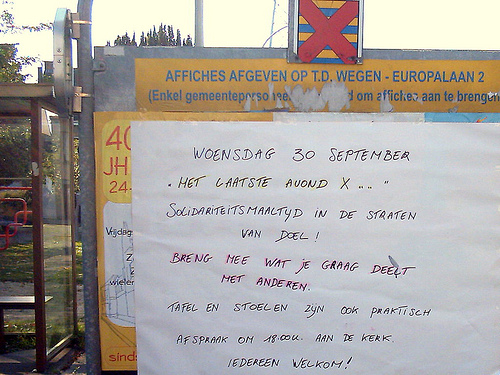 AFFICHES AFGEVEN OP T.D. WEGEN - EUROPALAAN 2
(Enkel om affiches aan te brengen
40
JH
24-
Vrijdag
Z
Z
wieler
sinds
WOENSDAG 30 SEPTEMBER
"HET LAATSTE AVOND X .. .. "
SOLIDARITEITSMAALTIJD IN DE STRATEN
VAN DOEL!
BRENG MEE WAT JE GRAAG DEELT
MET ANDEREN.
TAFEL EN STOELEN ZIJN OOK PRAKTISCH
AFSPRAAK OM 18:00U. AAN DE KERK.
IEDEREEN WELKOM!